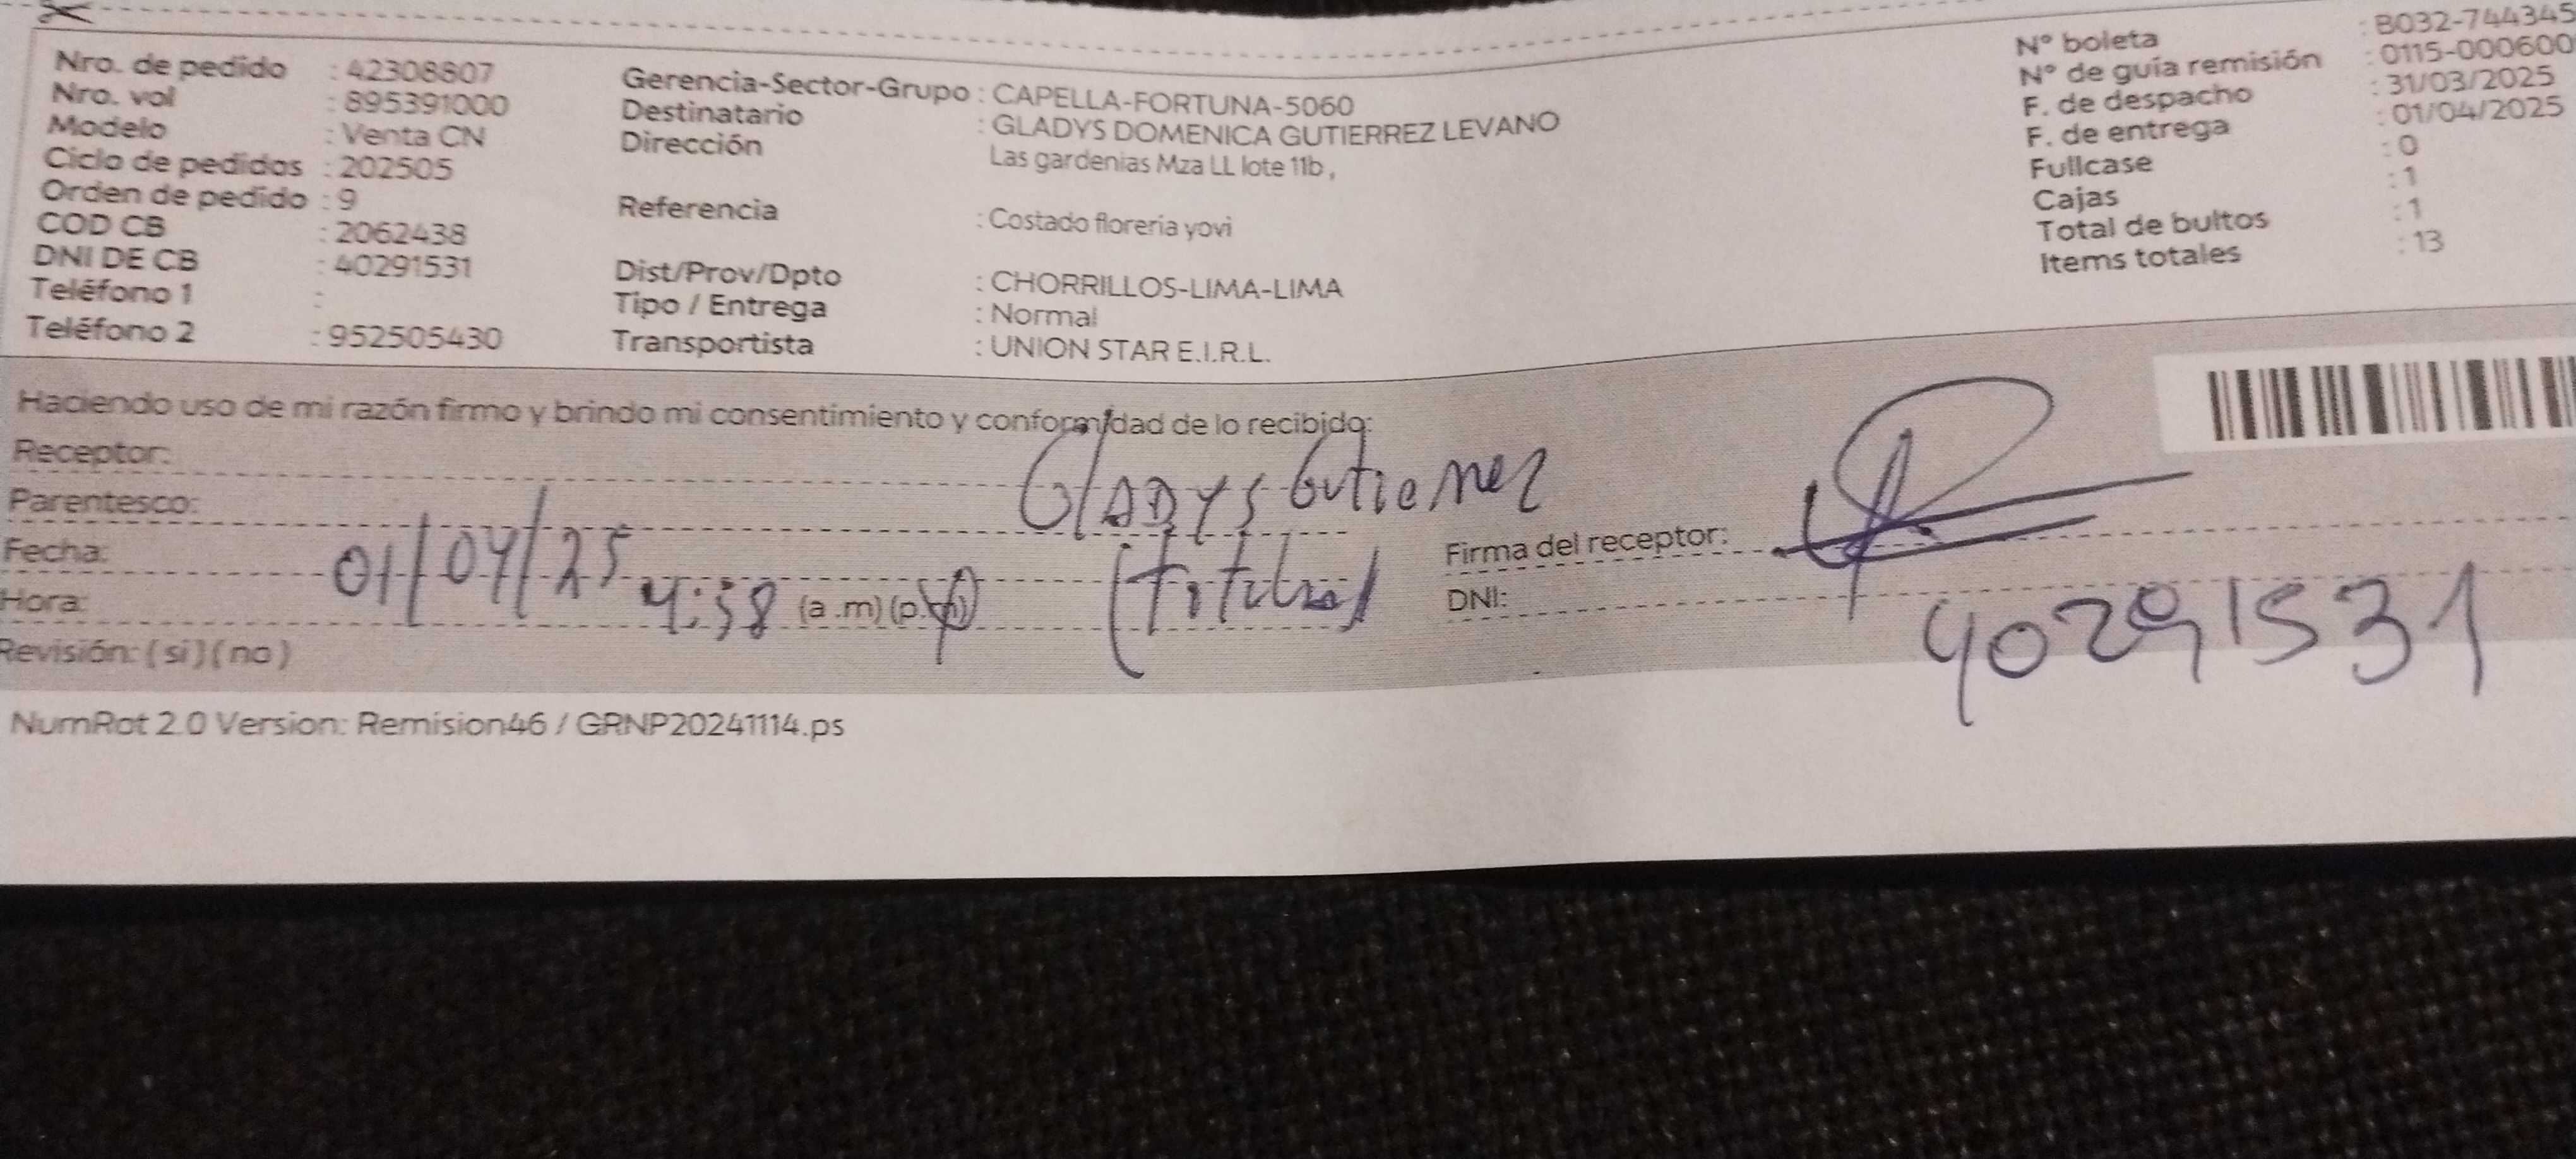 Nro. de pedido : 42308807
Nro. vol : 895391000
Modelo : Venta CN
Ciclo de pedidos : 202505
Orden de pedido : 9
COD CB : 2062438
DNI DE CB : 40291531
Teléfono 1 :
Teléfono 2 : 952505430
Gerencia-Sector-Grupo : CAPELLA-FORTUNA-5060
Destinatario : GLADYS DOMENICA GUTIERREZ LEVANO
Dirección Las gardenias Mza LL lote 11b ,
Referencia : Costado floreria yovi
Dist/Prov/Dpto : CHORRILLOS-LIMA-LIMA
Tipo / Entrega : Normal
Transportista : UNION STAR E.I.R.L.
N° boleta : B032-744345
N° de guía remisión : 0115-000600
F. de despacho : 31/03/2025
F. de entrega : 01/04/2025
Fullcase : 0
Cajas : 1
Total de bultos : 1
Items totales : 13
Haciendo uso de mi razón firmo y brindo mi consentimiento y conformidad de lo recibido:
Receptor: GLADYS Gutierrez
Parentesco: (titular)
Fecha: 01/04/25
Hora: 4:38 (a .m) (p.m)
Revisión: ( si ) ( no )
Firma del receptor:
DNI: 40291531
NumRot 2.0 Version: Remision46 / GRNP20241114.ps